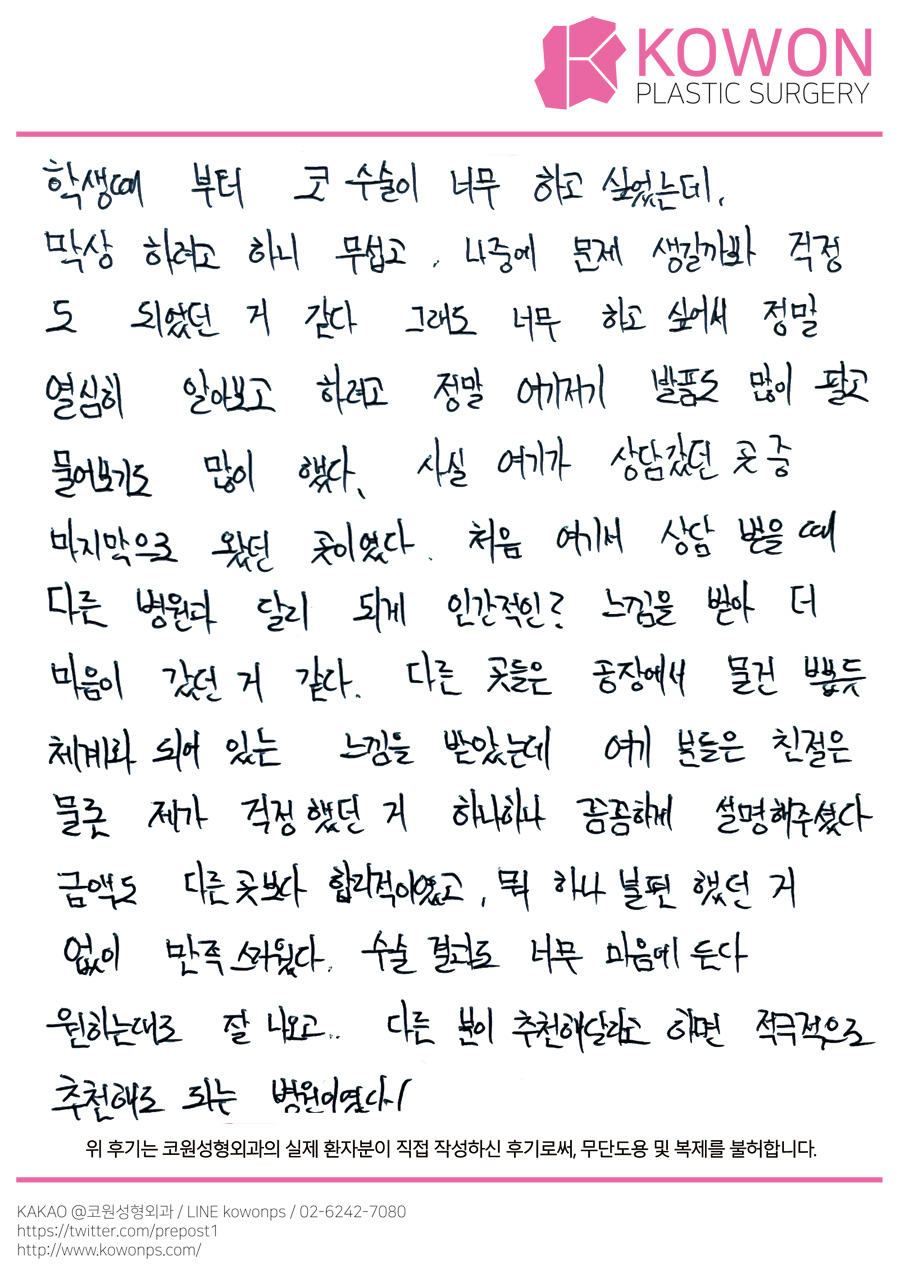 KOWON
PLASTIC SURGERY
학생때 부터 코 수술이 너무 하고 싶었는데,
막상 하려고 하니 무섭고, 나중에 문제 생길까봐 걱정
도 되었던 거 같다 그래도 너무 하고 싶어서 정말
열심히 알아보고 하려고 정말 여기저기 발품도 많이 팔고
물어보기도 많이 했다. 사실 여기가 상담갔던 곳 중
마지막으로 왔던 곳이였다. 처음 여기서 상담 받을 때
다른 병원과 달리 되게 인간적인? 느낌을 받아 더
마음이 갔던 거 같다. 다른 곳들은 공장에서 물건 뽑듯
체계화 되어 있는 느낌을 받았는데 여기 분들은 친절은
물론 제가 걱정했던 거 하나하나 꼼꼼하게 설명해주셨다
금액도 다른 곳보다 합리적이였고, 뭐 하나 불편 했던 거
없이 만족스러웠다. 수술 결과도 너무 마음에 든다
원하는대로 잘 나오고.. 다른 분이 추천해달라고 하면 적극적으로
추천해도 되는 병원이였다!
위 후기는 코원성형외과의 실제 환자분이 직접 작성하신 후기로써, 무단도용 및 복제를 불허합니다.
KAKAO @코원성형외과 / LINE kowonps / 02-6242-7080
https://twitter.com/prepost1
http://www.kowonps.com/